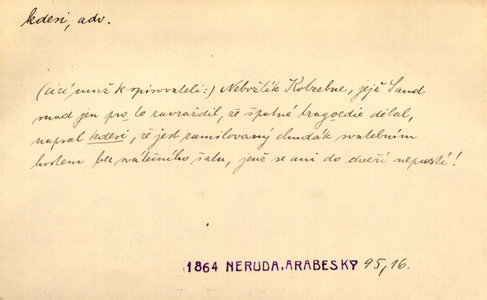 kdesi, adv.
(cizí muž k spisovateli:) Nebožtík Kotzebue, jejž Sand
snad jen pro to zavraždil, že špatné tragoedie dělal,
napsal kdesi, že jest zamilovaný chudák svatebním
hostem bez svátečního šatu, jenž se ani do dveří nepustí!
1864 NERUDA, ARABESKY 95, 16.